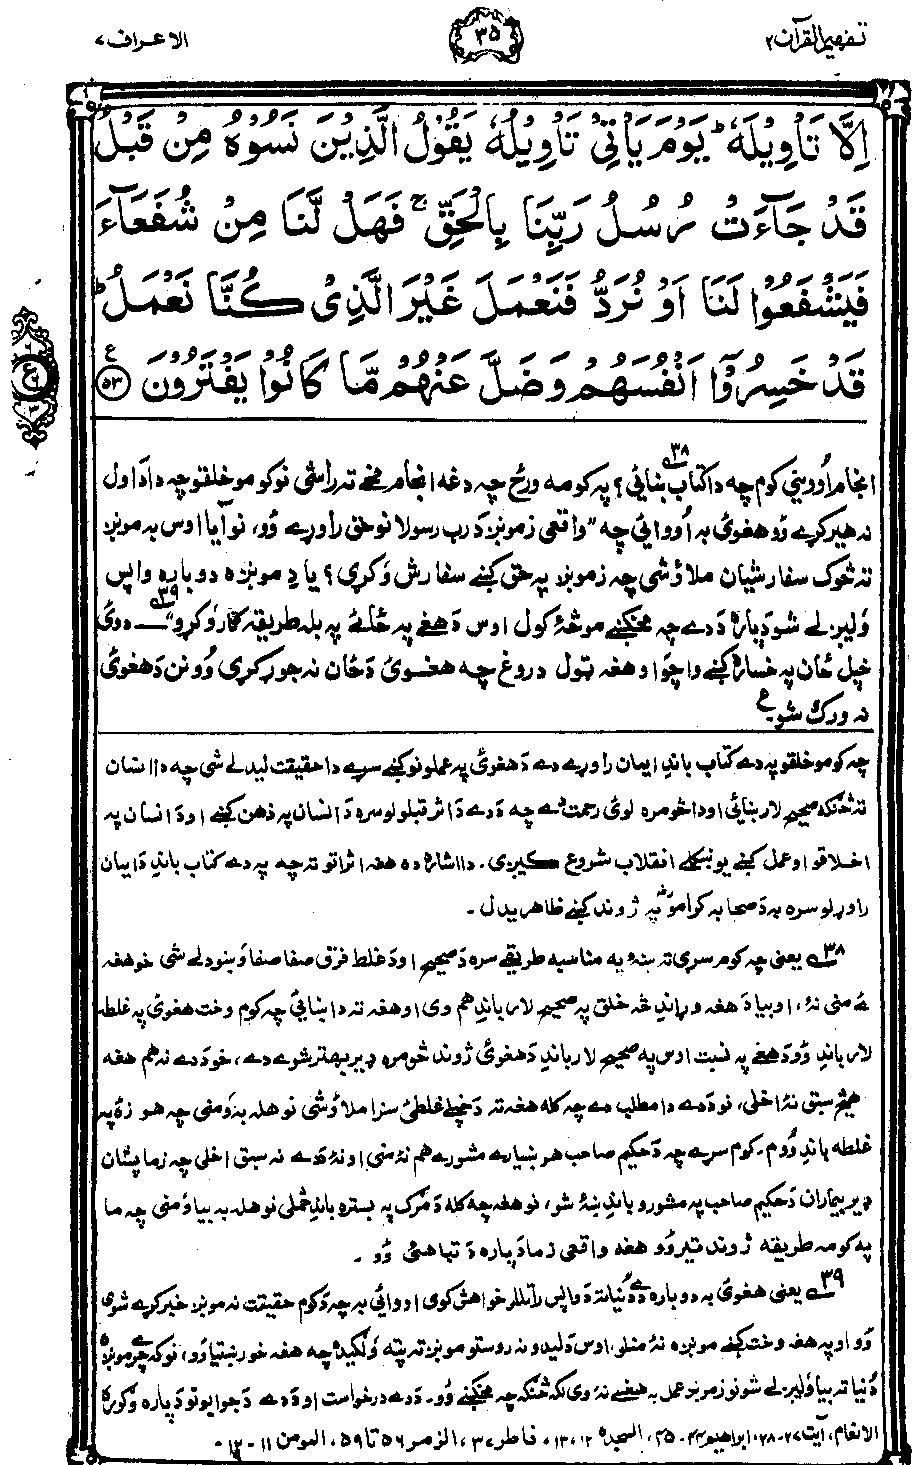 تفهيم القرآن ٢
٣٥
الاعراف ٧
اِلَّا تَاْوِيْلَهٗ ؕ يَوْمَ يَاْتِيْ تَاْوِيْلُهٗ يَقُوْلُ الَّذِيْنَ نَسُوْهُ مِنْ قَبْلُ
قَدْ جَآءَتْ رُسُلُ رَبِّنَا بِالْحَقِّ ۚ فَهَلْ لَّنَا مِنْ شُفَعَآءَ
فَيَشْفَعُوْا لَنَا اَوْ نُرَدُّ فَنَعْمَلَ غَيْرَ الَّذِيْ كُنَّا نَعْمَلُ ؕ
قَدْ خَسِرُوْٓا اَنْفُسَهُمْ وَضَلَّ عَنْهُمْ مَّا كَانُوْا يَفْتَرُوْنَ ﴿٥٣﴾ ع
انجام اُوويني كوم چه دا كتاب ښائي ٣٨؟ په كومه ورځ چه دغه انجام مخے ته راشي نو كومو خلقو چه دا اول
نه هير كړے ؤ هغوئ به اُووائي چه "واقعي زمونږ دَ رب رسولانو حق راوړے ؤو، نو آيا اوس به مونږ
ته څوك سفارشيان ملاؤ شي چه زمونږ په حق كښے سفارش وَكړي؟ يا دِ مونږه دوباره واپس
وَليږلے شو دَپاره دَ دے چه مخكښے مو څهٔ كول اوس دَ هغے په ځائے په بله طريقه كار وَكړو" ٣٩ــــ دوئ
خپل ځان په خساره كښے واچوا و هغه ټول دروغ چه هغوئ دَ ځان نه جوړ كړي وُو نن دَ هغوئ
نه ورك شو۔ ع
چه كومو خلقو په دے كتاب باندِ ايمان راوړے دے دَ هغوئ په عملونو كښے سړے دا حقيقت ليدلے شي چه دا انسان
ته څنګه صحيح لار ښائي او دا څومره لوئ رحمت دے چه دَ دے دَ اثر قبلولو سره دَ انسان په ذهن كښے او دَ انسان په
اخلاقو او عمل كښے يو ښكلے انقلاب شروع كيږي۔ دا اشاره ده هغه اثراتو ته چه په دے كتاب باندِ دَ ايمان
راوړلو سره به دَ صحابه كرامو په ژوند كښے ظاهريدل۔
٣٨ يعني چه كوم سړي ته ښهٔ په مناسبه طريقے سره دَ صحيح او دَ غلط فرق صفا صفا وَښودلے شي خو هغه
ئے مني نهٔ، او بيا دَ هغه وړاندِ څه خلق په صحيح لار باندِ هم وي او هغه ته دا ښائي چه كوم وخت هغوئ په غلطه
لار باندِ ؤو دَ هغے په نسبت اوس په صحيح لار باندِ دَ هغوئ ژوند څومره ډير بهتر شوے دے، خو دَ دے نه هم هغه
هيڅ سبق نهٔ اخلي، نو دَ دے دا مطلب دے چه كله هغه ته دَ خپلے غلطئ سزا ملاؤ شي نو هله به ؤمني چه هو زهٔ په
غلطه باندِ ؤوم۔ كوم سړے چه دَ حكيم صاحب هوښيارے مشورے هم نهٔ مني او نهٔ دَ دے نه سبق اخلي چه زما پشان
ډير بيماران دَ حكيم صاحب په مشورو باندِ ښهٔ شو، نو هغه چه كله دَ مرګ په بستره باندِ څملي نو هله به بيا ؤمني چه ما
په كومه طريقه ژوند تيروُو هغه واقعي زما دَپاره دَ تباهئ ؤو۔
٣٩ يعني هغوئ به دوباره دے دُنيا ته دَ واپس راتللو خواهش كوي او وائي به چه دَ كوم حقيقت نه مونږ خبر كړے شوي
ؤو او په هغه وخت كښے مونږه نهٔ منلو، اوس دَ ليدو نه روستو مونږ ته پته وَلګيده چه هغه خو رښتيا ؤو، نو كه چرے مونږه
دُنيا ته بيا وَليږلے شو نو زمونږ عمل به هغسے نهٔ وي لكه څنګه چه مخكښے ؤو۔ دَ دے درخواست او دَ دے دَ جوابونو دَپاره وَګوره
الانعام، آيت ٢٧-٢٨، ابراهيم ٤٤-٤٥، السجده ١٢، ١٣، فاطر ٣٧، الزمر ٥٦ تا ٥٩، المومن ١١-١٢-